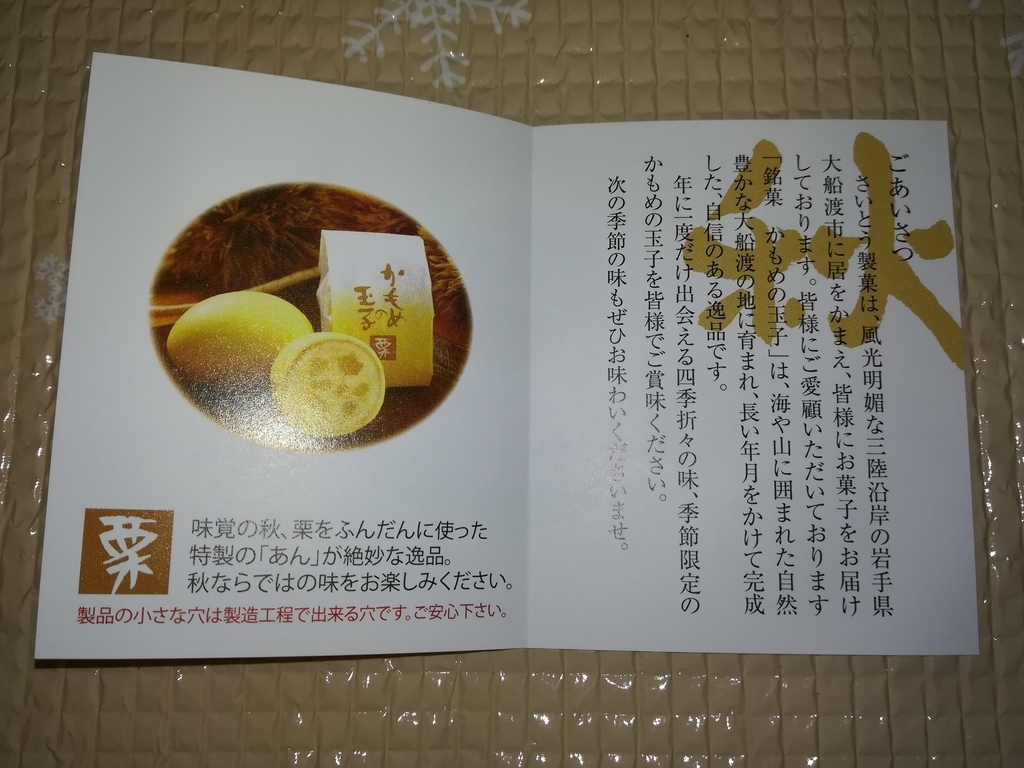 ごあいさつ
さいとう製菓は、風光明媚な三陸沿岸の岩手県
大船渡市に居をかまえ、皆様にお菓子をお届け
しております。皆様にご愛顧いただいております
「銘菓 かもめの玉子」は、海や山に囲まれた自然
豊かな大船渡の地に育まれ、長い年月をかけて完成
した、自信のある逸品です。
年に一度だけ出会える四季折々の味、季節限定の
かもめの玉子を皆様でご賞味ください。
次の季節の味もぜひお味わいくださいませ。
秋
かもめの
玉子
栗
栗
味覚の秋、栗をふんだんに使った
特製の「あん」が絶妙な逸品。
秋ならではの味をお楽しみください。
製品の小さな穴は製造工程で出来る穴です。ご安心下さい。